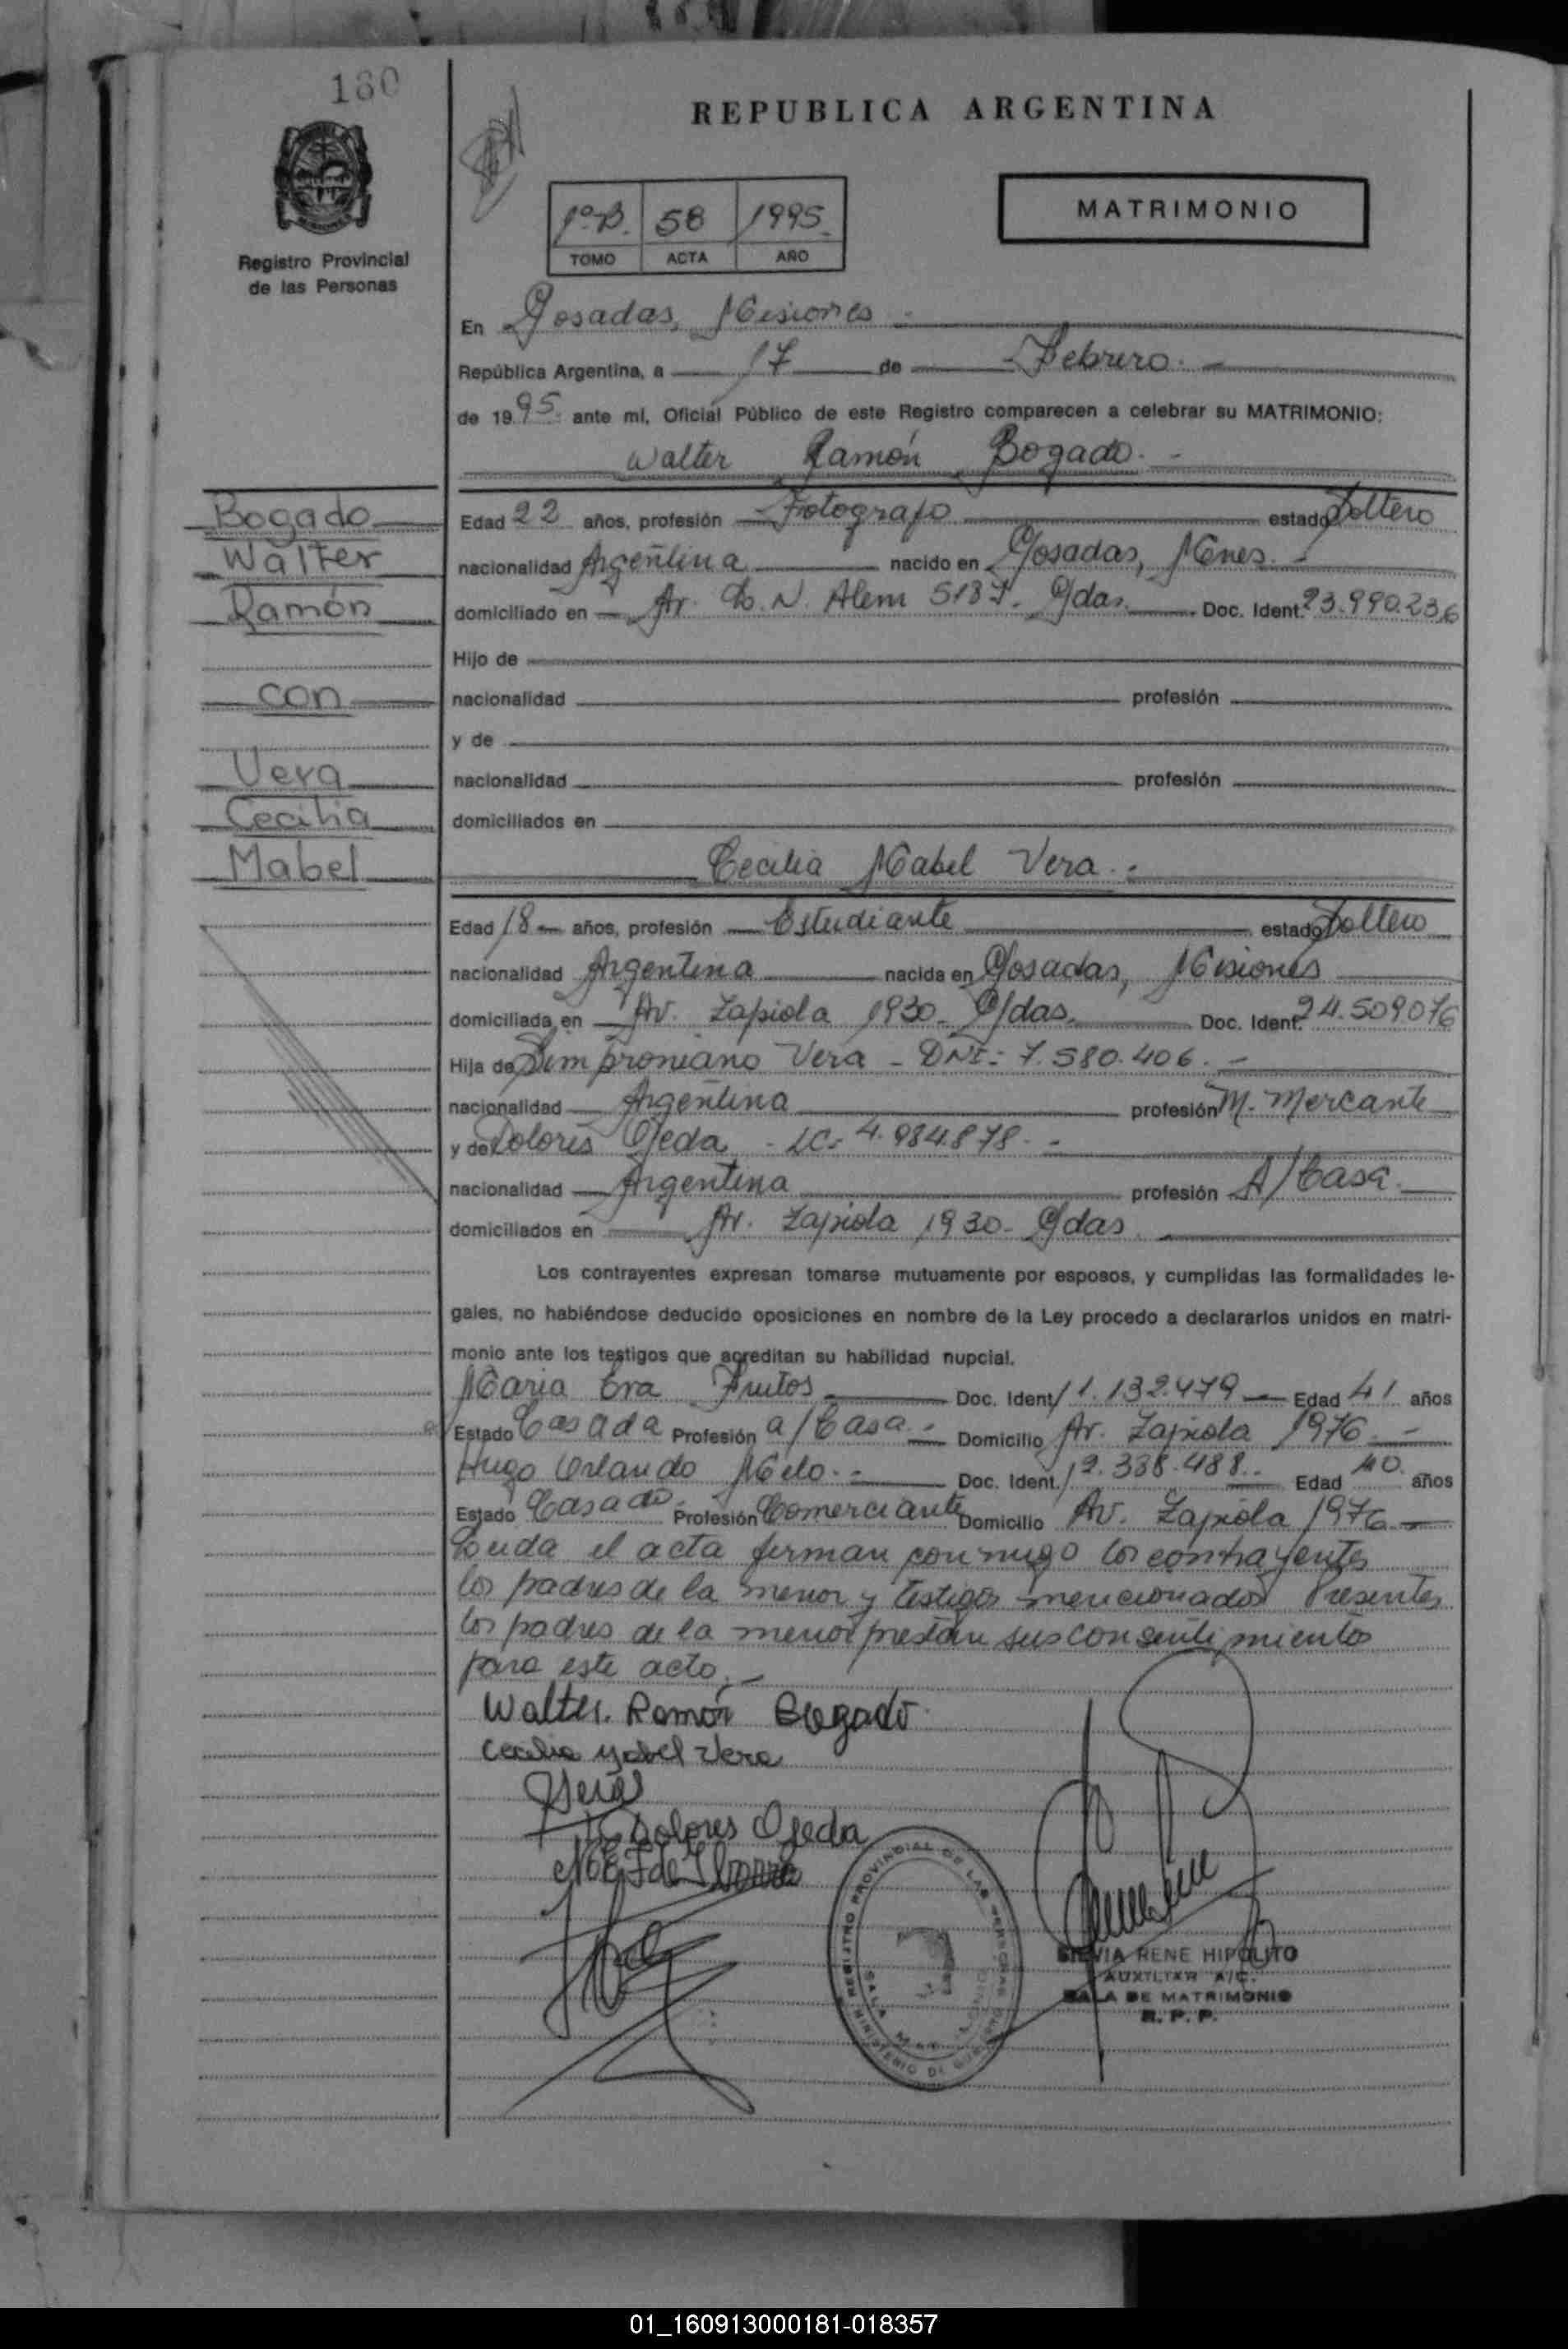 180
REPUBLICA ARGENTINA
Registro Provincial
de las Personas
1º B. 58 1995.
TOMO ACTA AÑO
MATRIMONIO
En Posadas, Misiones
República Argentina, a 17 de Febrero
de 1995 ante mí, Oficial Público de este Registro comparecen a celebrar su MATRIMONIO:
Walter Ramón Bogado
Bogado
Walter
Ramón
con
Vera
Cecilia
Mabel
Edad 22 años, profesión Fotografo estado Soltero
nacionalidad Argentina nacido en Posadas, Mnes.
domiciliado en Av. L. N. Alem Pdas. Doc. Ident. 23.990.236
Hijo de
nacionalidad profesión
y de
nacionalidad profesión
domiciliados en
Cecilia Mabel Vera
Edad 18 años, profesión Estudiante estado Soltero
nacionalidad Argentina nacida en Posadas, Misiones
domiciliada en Av. Zapiola 1930 - Pdas. Doc. Ident. 24.509.076
Hija de Simproniano Vera - DNI: 7.580.406
nacionalidad Argentina profesión M. Mercante
y de Dolores Ojeda - LC: 4.984.878
nacionalidad Argentina profesión A/Casa
domiciliados en Av. Zapiola 1930 - Pdas
Los contrayentes expresan tomarse mutuamente por esposos, y cumplidas las formalidades le-
gales, no habiéndose deducido oposiciones en nombre de la Ley procedo a declararlos unidos en matri-
monio ante los testigos que acreditan su habilidad nupcial.
Maria Eva Frutos Doc. Ident. 11.132.479 Edad 41 años
Estado Casada Profesión a/Casa Domicilio Av. Zapiola 1976
Hugo Orlando Melo Doc. Ident. 12.338.488 Edad 40 años
Estado Casado Profesión Comerciante Domicilio Av. Zapiola 1976
Leida el acta firman conmigo los contrayentes
los padres de la menor y testigos mencionados Presentes
los padres de la menor prestan sus consentimientos
para este acto
Walter Ramón Bogado
Cecilia Mabel Vera
Vera
Dolores Ojeda
REGISTRO PROVINCIAL DE LAS PERSONAS
MINISTERIO DE GOBIERNO
SALA
SILVIA RENE HIPOLITO
AUXILIAR A/C.
SALA DE MATRIMONIO
R. P. P.
01_160913000181-018357